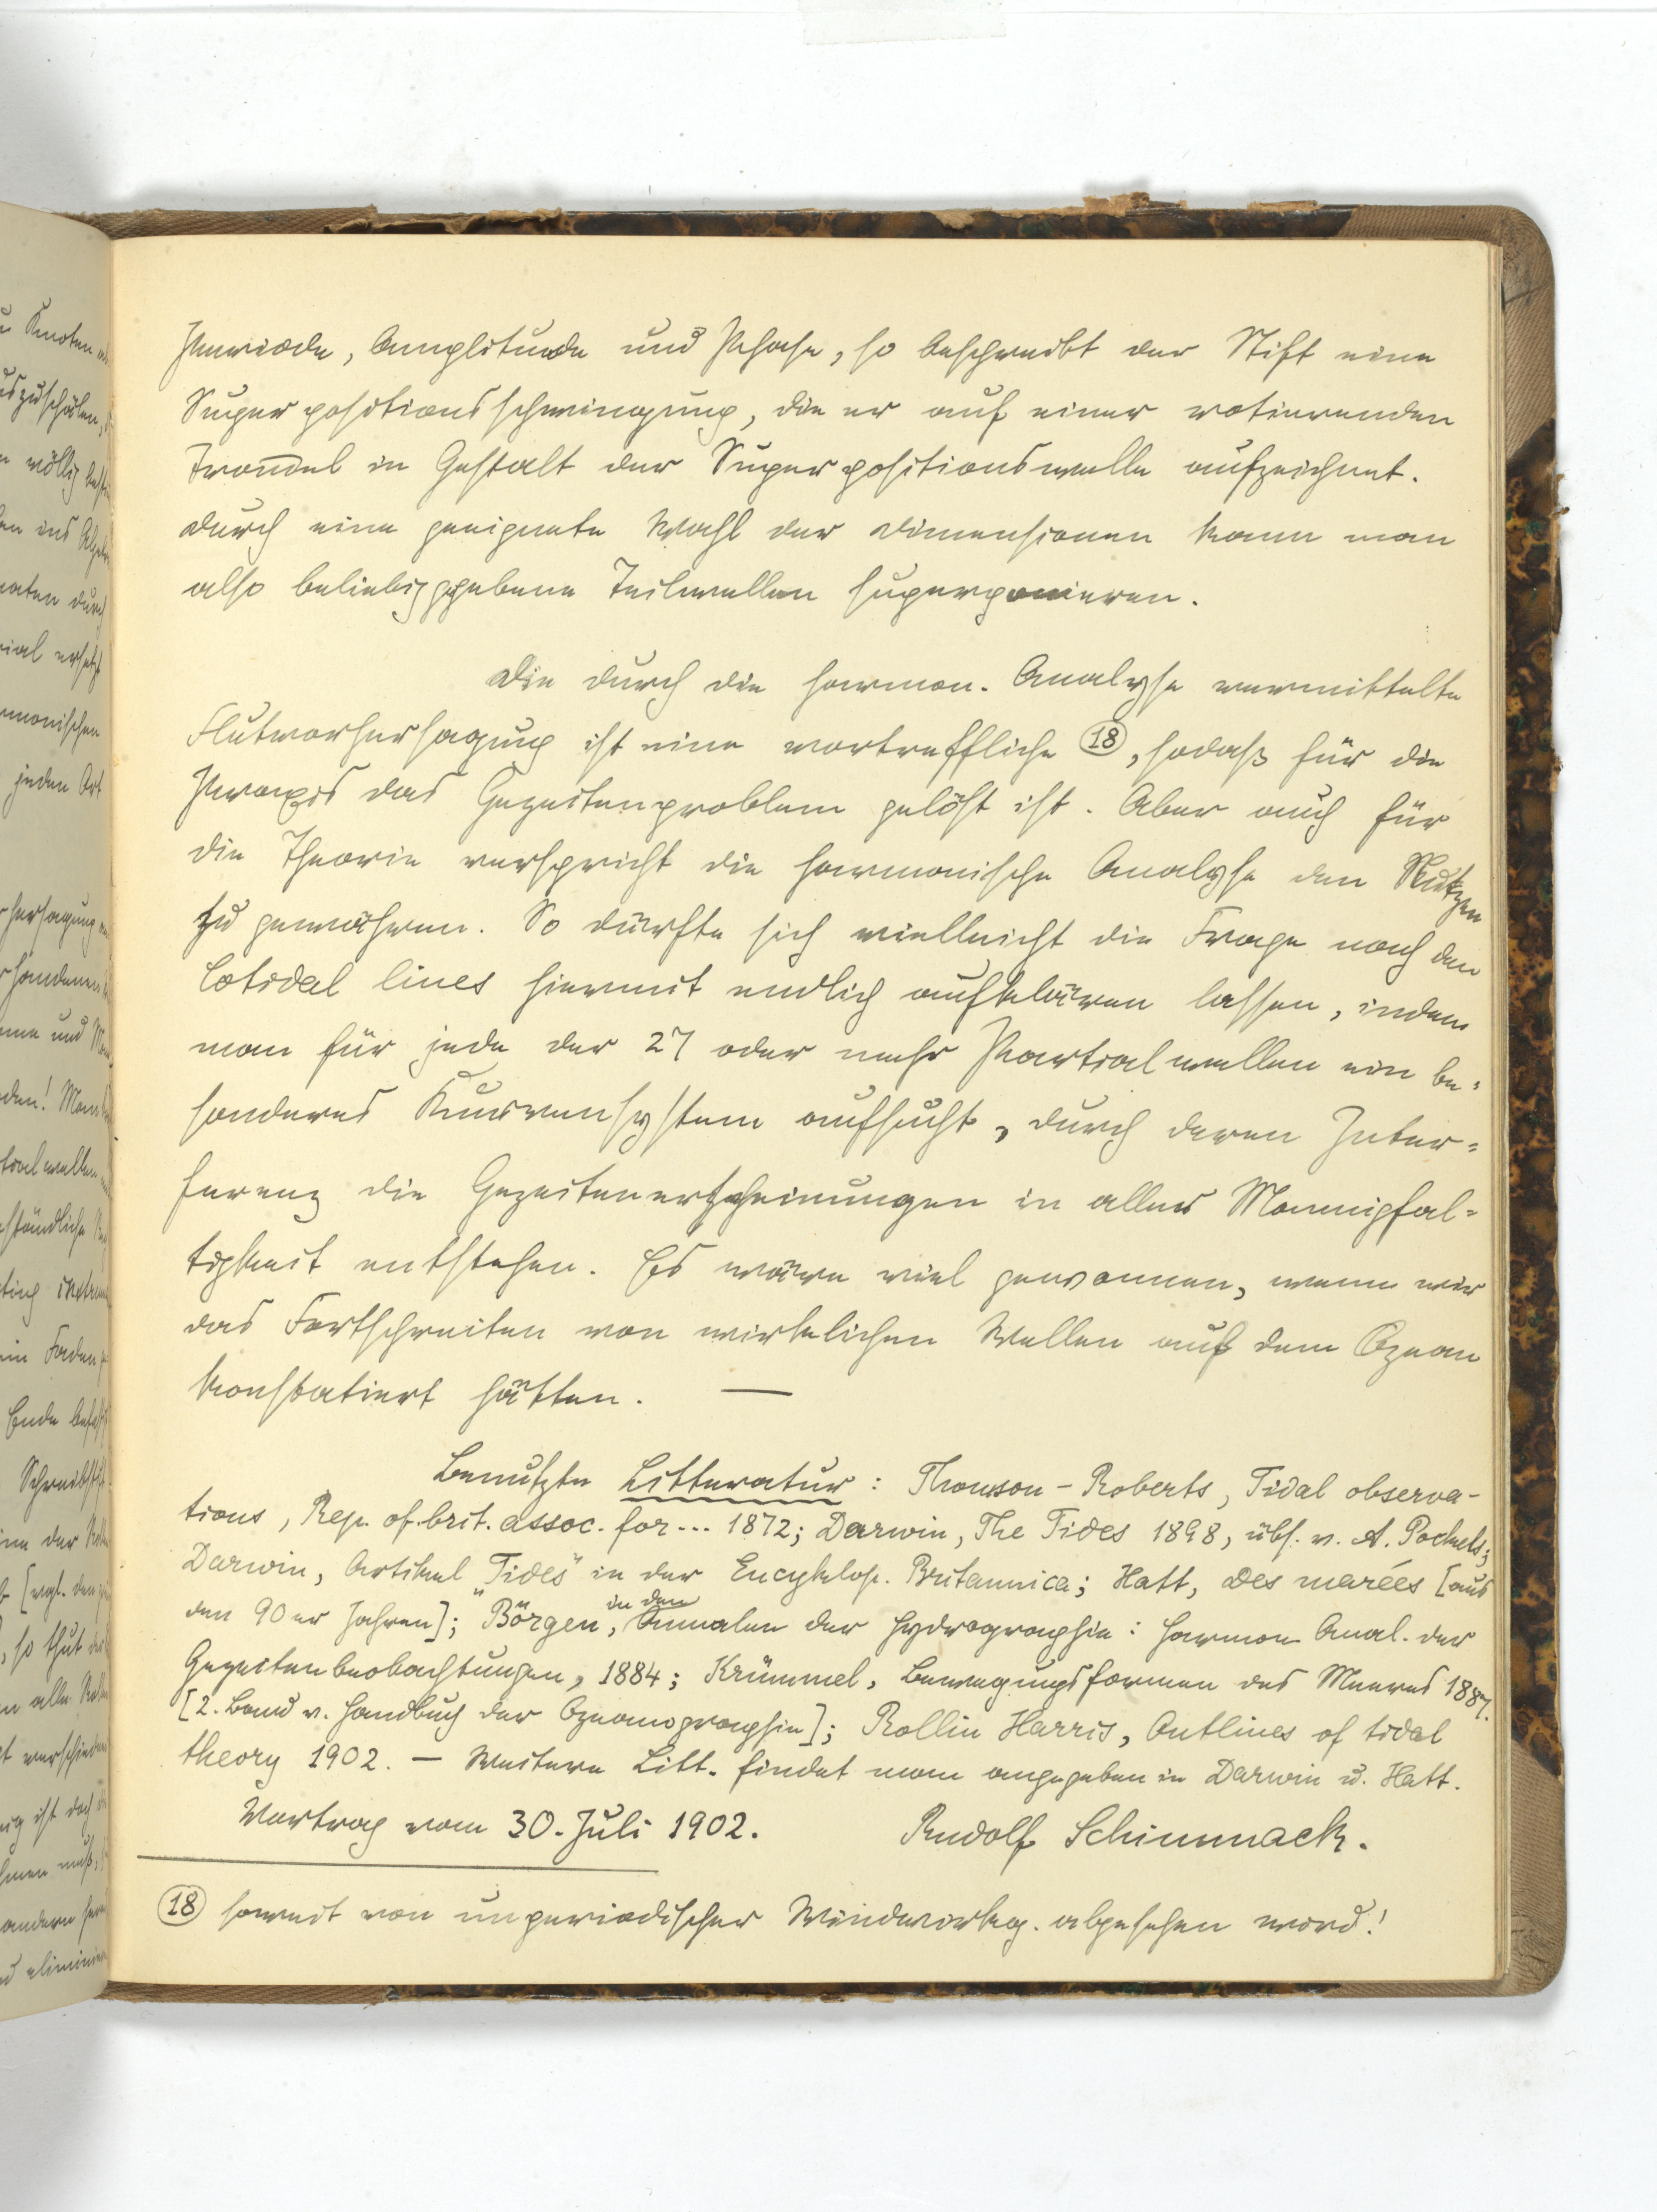 Periode, Amplitude und Phase, so beschreibt der Stift eine
Superpositionsschwingung, die er auf einer rotierenden
Trom̄el in Gestalt der Superpositionswelle aufzeichnet.
Durch eine geeignete Wahl der Dimensionen kann man
also beliebig gegebene Teilwellen superponieren.
Die durch die harmon. Analyse vermittelte
Flutvorhersagung ist eine vortreffliche (18), sodaß für die
Praxis das Gezeitenproblem gelöst ist. Aber auch für
die Theorie verspricht die harmonische Analyse den Nutzen
zu gewähren. So dürfte sich vielleicht die Frage nach den
Cotidal lines hiermit endlich aufklären lassen, indem
man für jede der 27 oder mehr Partialwellen ein be-
sonderes Kurvensystem aufsucht, durch deren Inter-
ferenz die Gezeitenerscheinungen in aller Mannigfal-
tigkeit entstehen. Es wäre viel gewonnen, wenn wir
das Fortschreiten von wirklichen Wellen auf dem Ozean
konstatiert hätten. —
Benutzte Litteratur: Thomson-Roberts, Tidal observa-
tions, Rep. of. brit. assoc. for... 1872; Darwin, The Tides 1898, übs. v. A. Pockels;
Darwin, Artikel „Tides" in der Encyklop. Britannica; Hatt, Des marées [aus
den 90er Jahren]; Börgen, in den Annalen der Hydrographie: Harmon. Anal. der
Gezeitenbeobachtungen, 1884; Krümmel, Bewegungsformen des Meeres 1887.
[2. Band v. Handbuch der Ozeanographie]; Rollin Harris, Outlines of tidal
theory 1902. — Weitere Litt. findet man angegeben in Darwin u. Hatt.
Vortrag vom 30. Juli 1902. Rudolf Schimmack.
(18) soweit von unperiodischer Windwirkg. abgesehen wird!